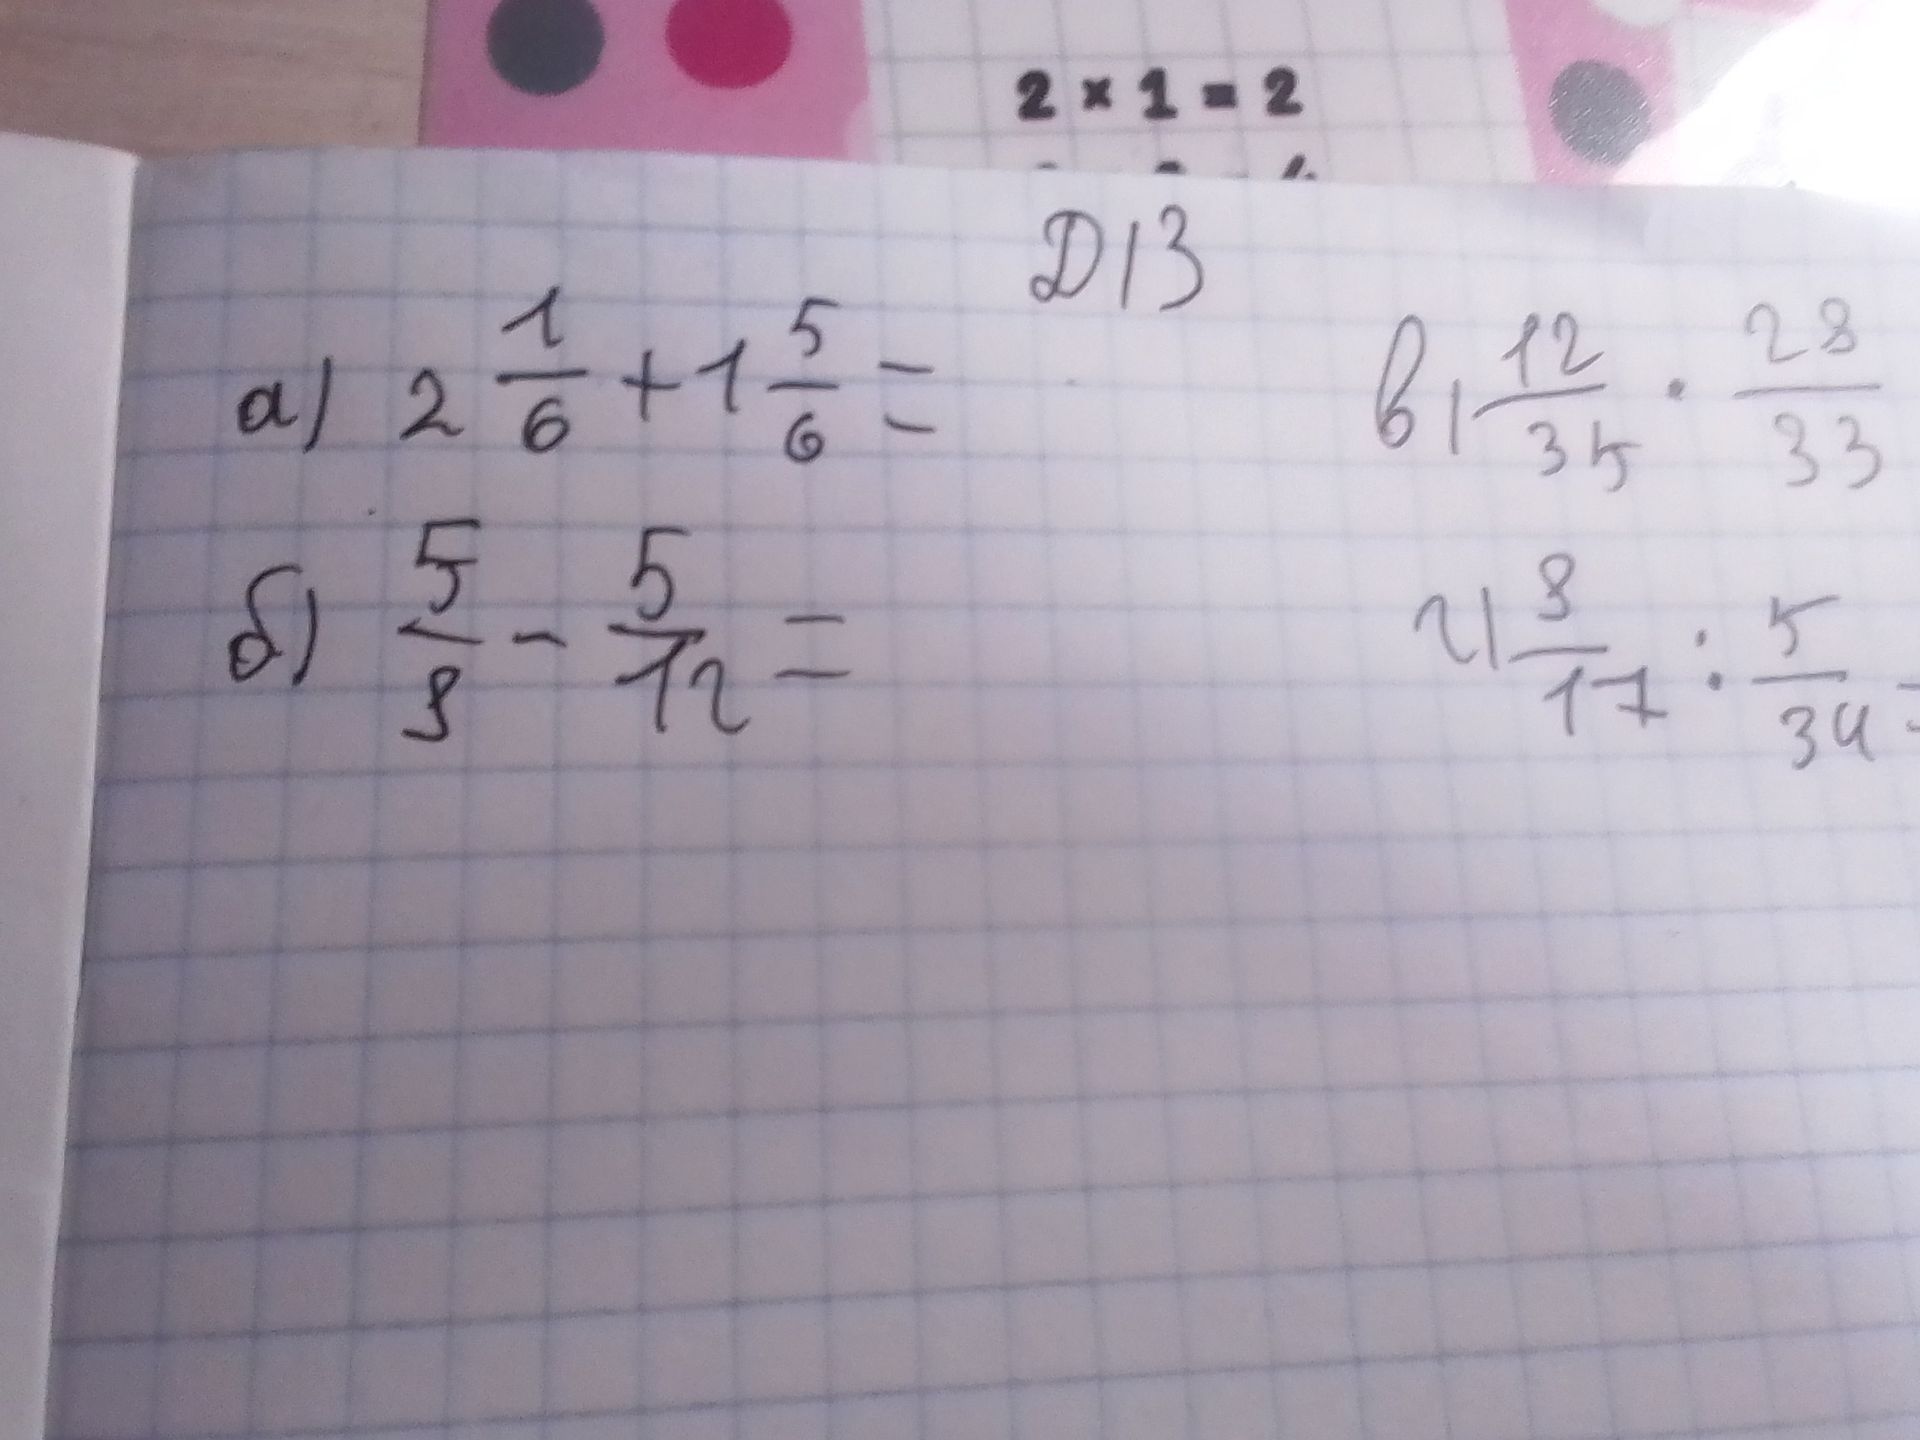 2 × 1 = 2
Д/З
а) 2 1/6 + 1 5/6 =
в) 12/35 · 28/33
б) 5/8 - 5/12 =
г) 8/17 : 5/34 =